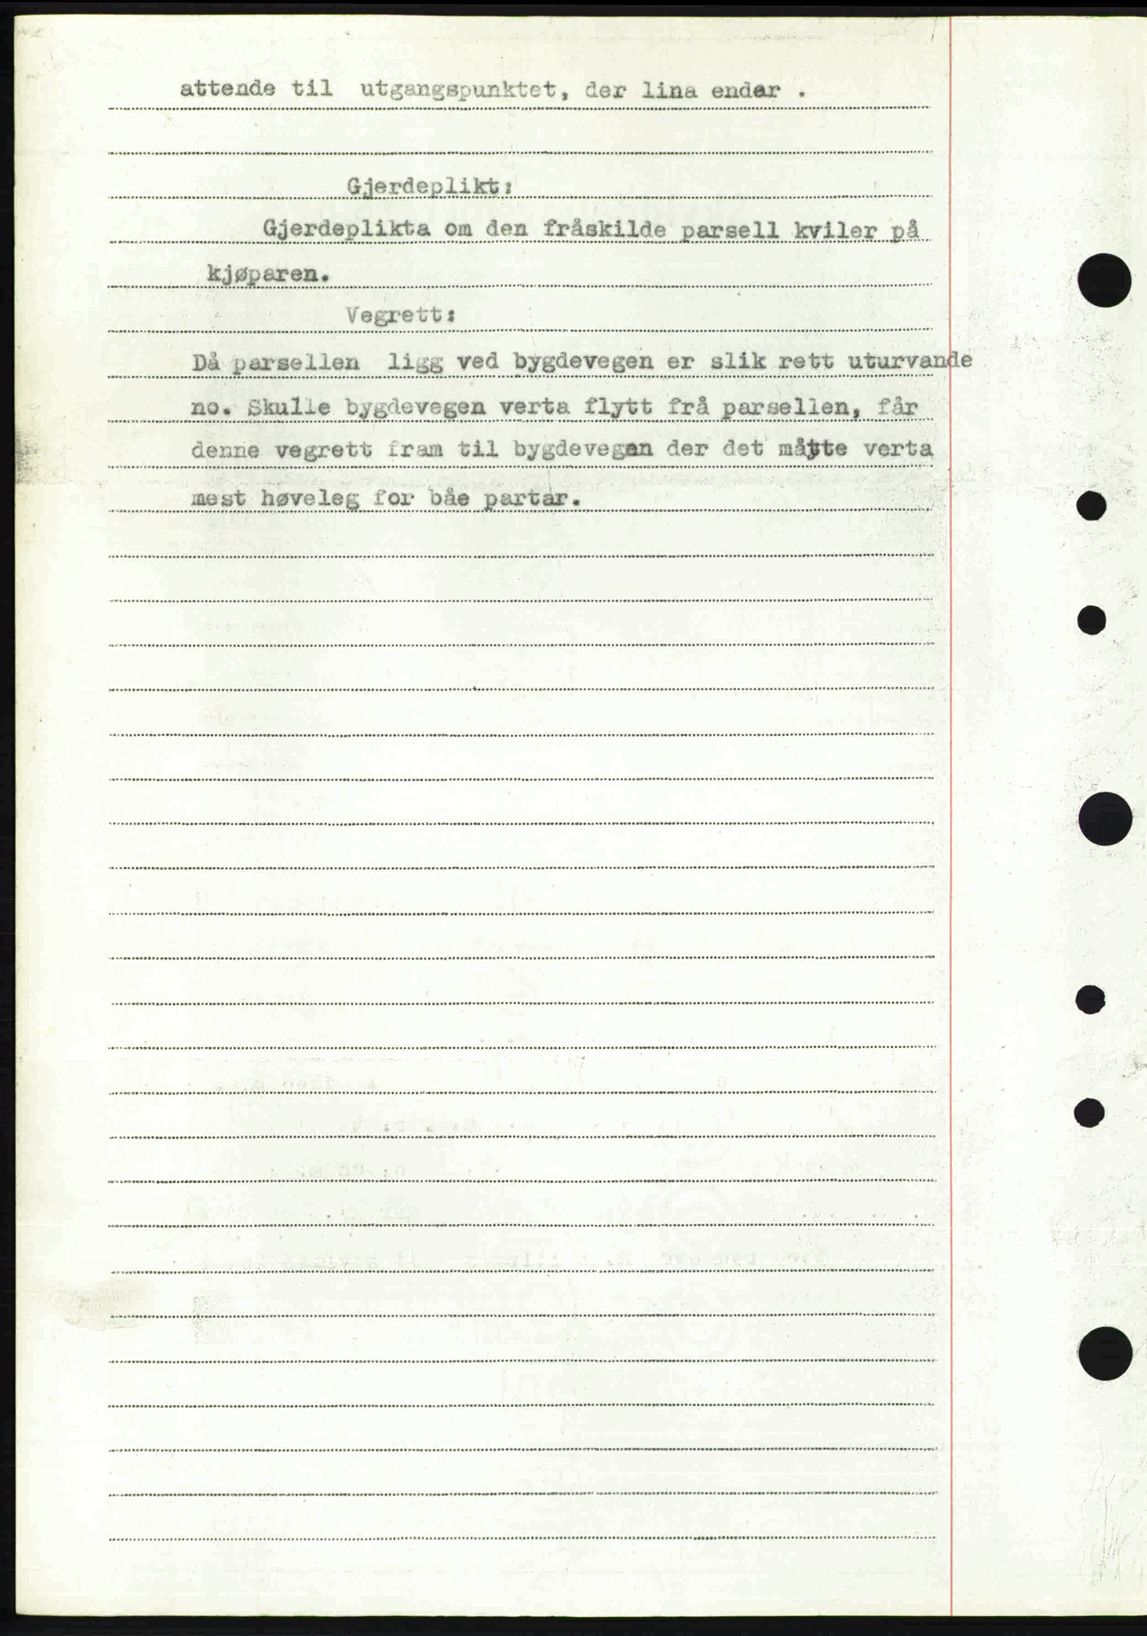 attende til utgangspunktet, der lina endar .
Gjerdeplikt:
Gjerdeplikta om den fråskilde parsell kviler på
kjøparen.
Vegrett:
Då parsellen ligg ved bygdevegen er slik rett uturvande
no. Skulle bygdevegen verta flytt frå parsellen, får
denne vegrett fram til bygdevegen der det måtte verta
mest høveleg for båe partar.